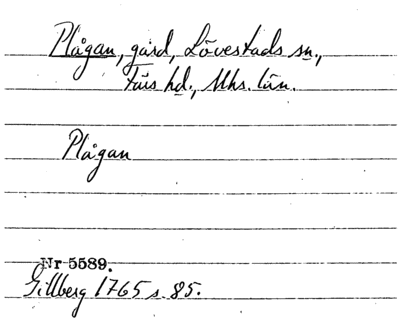 Plågan, gård, Lövestads sn.,
Färs hd., Mhs. län.
Plågan
Nr 5589.
Gillberg 1765 s. 85.